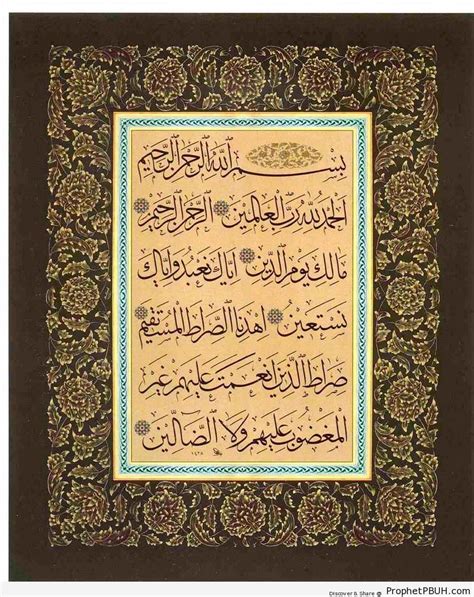 بسم الله الرحمن الرحيم
الحمد لله رب العالمين الرحمن الرحيم
مالك يوم الدين اياك نعبد واياك
نستعين اهدنا الصراط المستقيم
صراط الذين انعمت عليهم غير
المغضوب عليهم ولا الضالين
١٤٢٨
Discover & Share @ ProphetPBUH.com